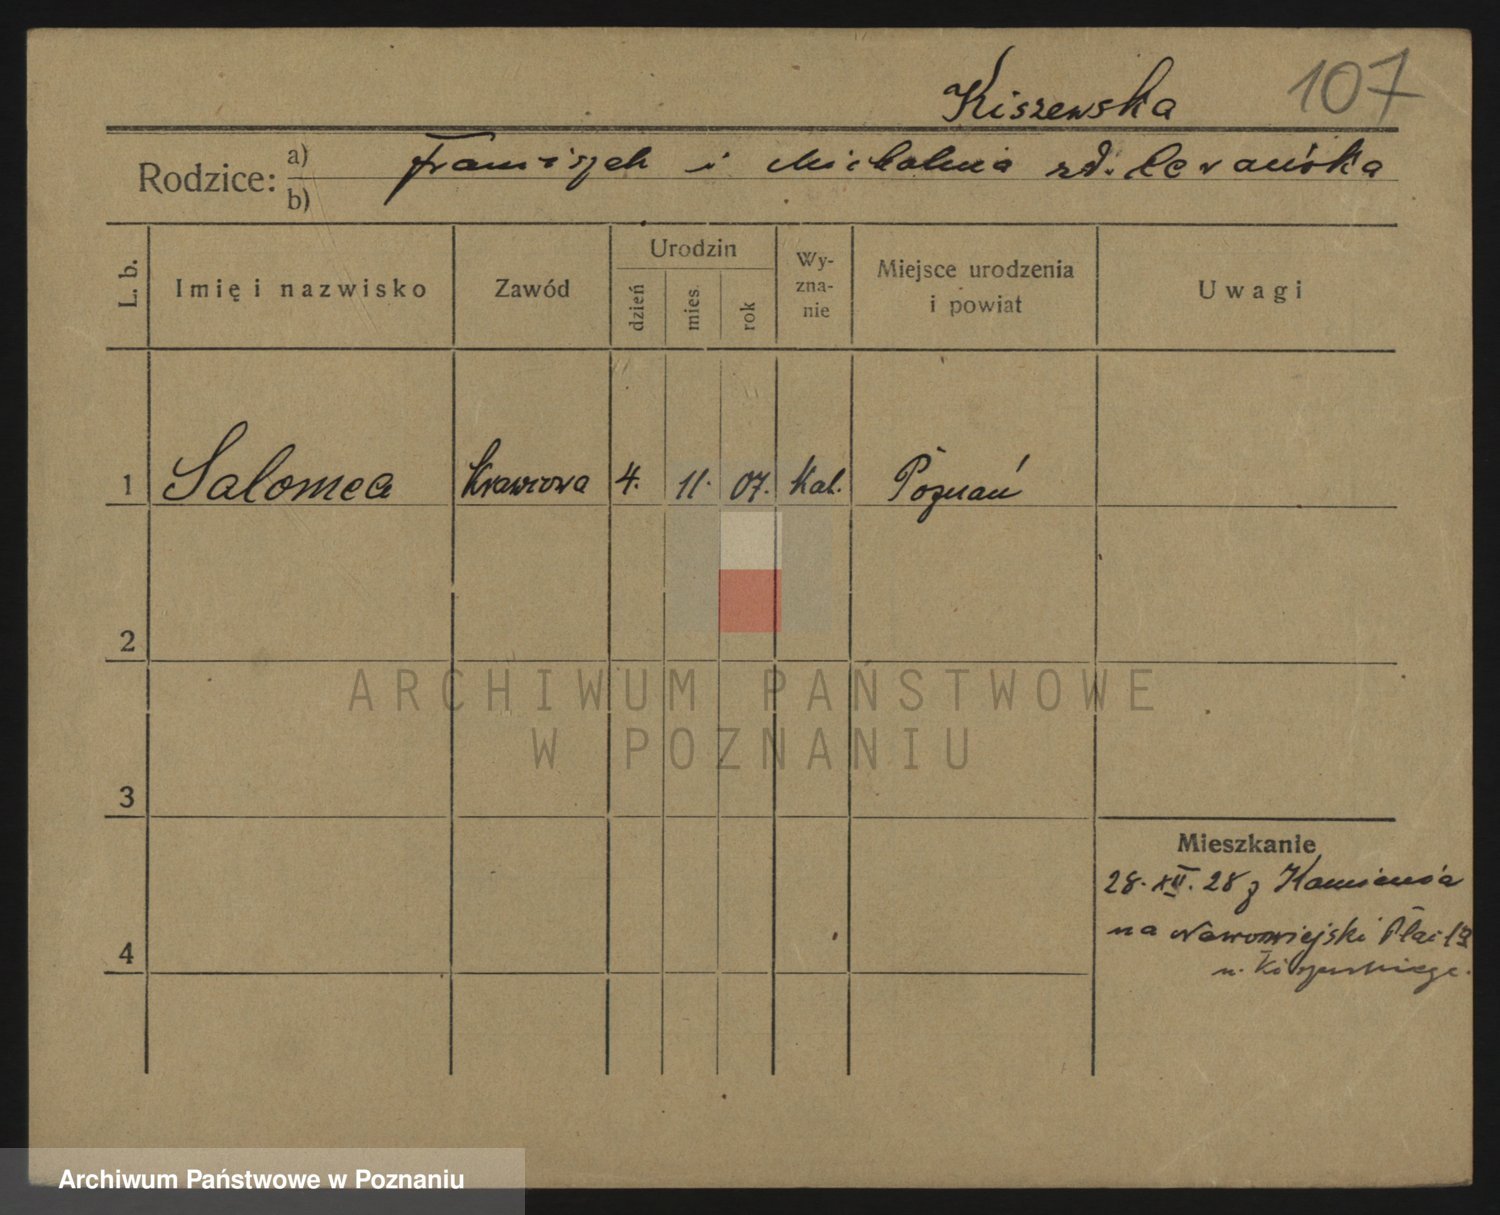 Kiszewska 107
Rodzice: a) Franciszek i Michalina zd.
b)
L. b. Imię i nazwisko Zawód Urodzin dzień mies. rok Wy-zna-nie Miejsce urodzenia i powiat Uwagi
1 Salomea Krawcowa 4. 11. 07. Kat. Poznań
2
ARCHIWUM PAŃSTWOWE
W POZNANIU
3
Mieszkanie
28. XII. 28 z
na
4
Archiwum Państwowe w Poznaniu